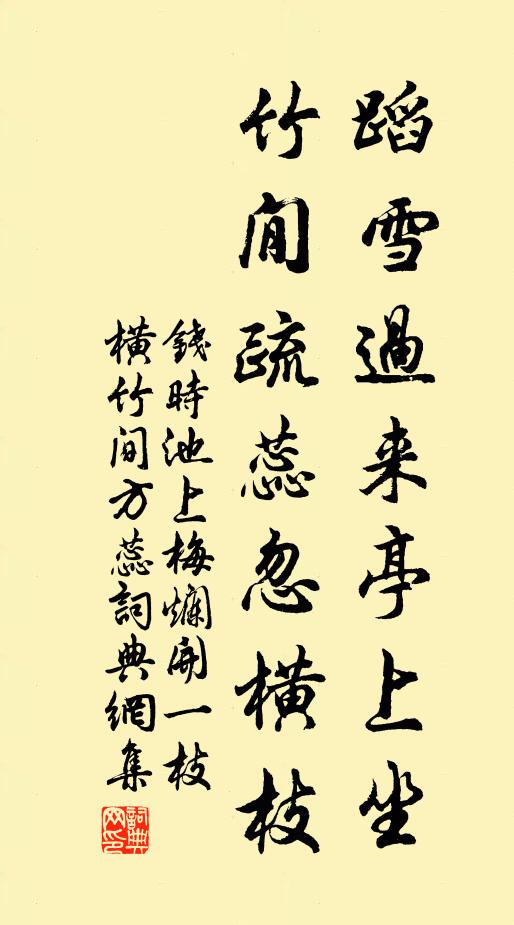 蹈雪過来亭上坐
竹間疏蕊忽橫枝
錢時池上梅爛開一枝
橫竹間方蕊詞典網集
詞典
网印